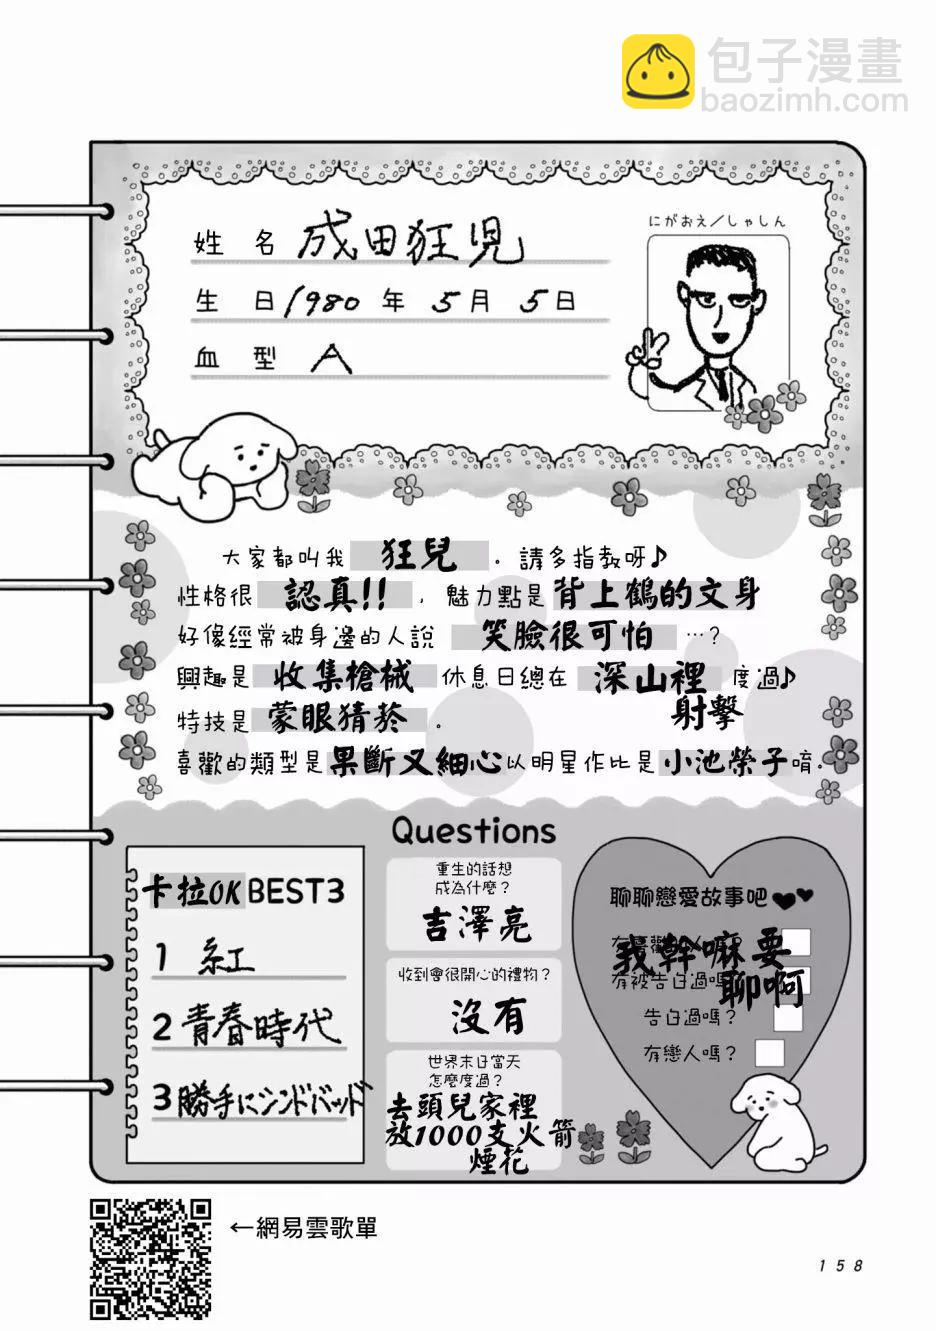 包子漫畫
baozimh.com
姓名 成田狂児
にがおえ/しゃしん
生日 1980年5月5日
血型 A
大家都叫我 狂兒 。請多指教呀♪
性格很 認真!! ，魅力點是 背上鶴的文身
好像經常被身邊的人說 笑臉很可怕 …?
興趣是 收集槍械 休息日總在 深山裡 度過♪
射擊
特技是 蒙眼猜菸 。
喜歡的類型是 果斷又細心 以明星作比是 小池榮子 唷.
Questions
卡拉OK BEST3
1 紅
2 青春時代
3 勝手にシンドバッド
重生的話想
成為什麼?
吉澤亮
收到會很開心的禮物?
沒有
世界末日當天
怎麼度過?
去頭兒家裡
放1000支火箭
煙花
聊聊戀愛故事吧
我幹嘛要
聊啊
有被告白過嗎?
告白過嗎?
有戀人嗎?
←網易雲歌單
158